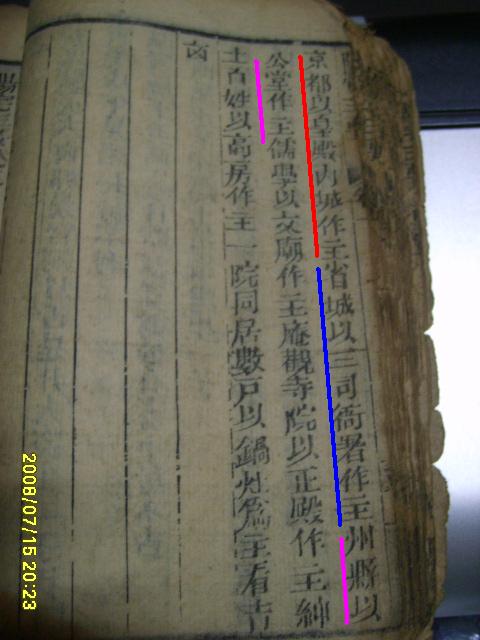 京都以皇殿內城作主省城以三司衙署作主州縣以
公堂作主儒學以文廟作主庵觀寺院以正殿作主紳
士百姓以高房作主一院同居數戶以鍋灶為主看吉
凶
2008/07/15 20:23